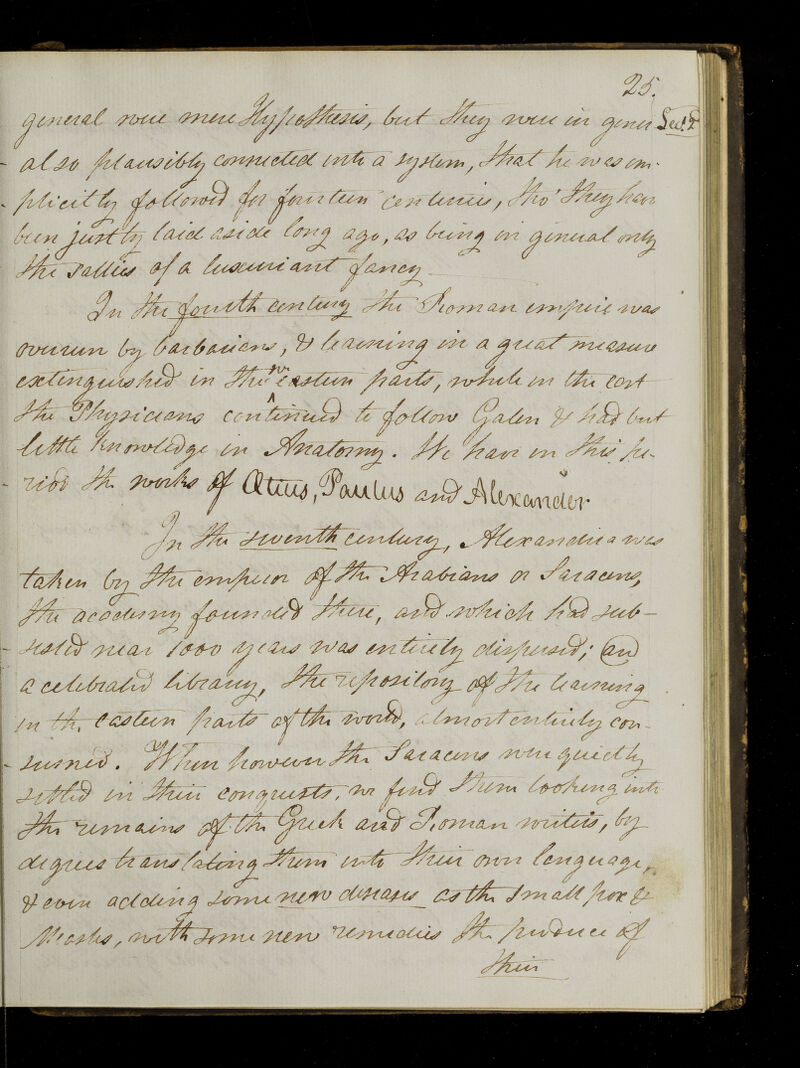 25.
general were mere Hypothesis, but they were in gener- Lect. 2
al so plausibly connected into a system, that he was im-
plicitly followed for fourteen centuries, tho' they have
been justly laid aside long ago, as being in general only
the sallies of a luxuriant fancy
In the fourth century the Roman empire was
overrun by barbarians, & learning in a great measure
extinguished in the western parts, while in the east
the Physicians continued to follow Galen & had but
little knowledge in Anatomy. We have in this pe-
riod the works of Ætius, Paulus and Alexander
In the seventh century, Alexandria was
taken by the emperor of the Arabians or Saracens,
the academy founded there, and which had sub-
sisted near 1000 years was entirely dispersed; and
a celebrated library, the repository of the learning
in the eastern parts of the world, almost entirely con-
sumed. When however the Saracens were quietly
settled in their conquests, we find them looking into
the remains of the Greek and Roman writers, by
degrees translating them into their own language,
& even adding some new diseases as the small pox &
Measles, with some new remedies the produce of
their